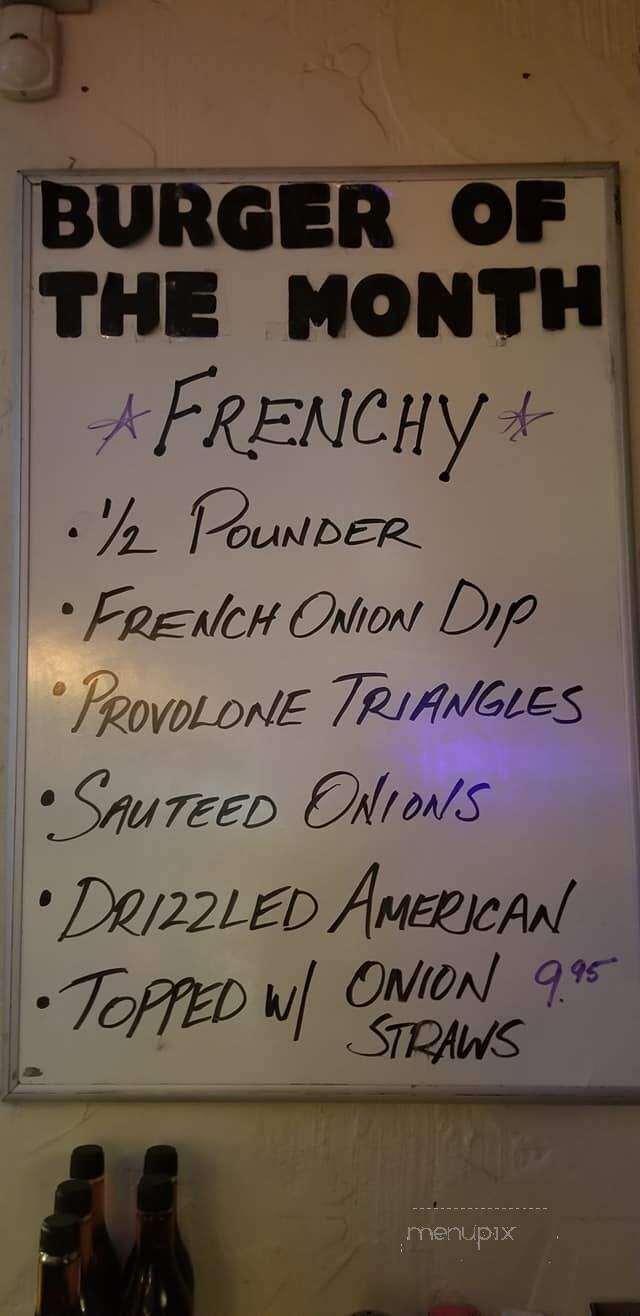 BURGER OF
THE MONTH
☆ FRENCHY ☆
• 1/2 POUNDER
• FRENCH ONION DIP
• PROVOLONE TRIANGLES
• SAUTEED ONIONS
• DRIZZLED AMERICAN
• TOPPED W/ ONION 9.95
STRAWS
menupix